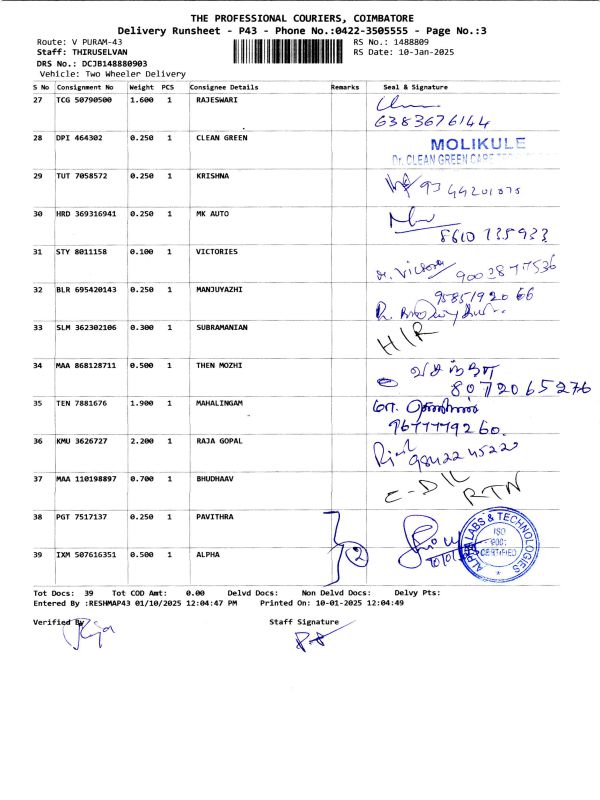 THE PROFESSIONAL COURIERS, COIMBATORE
Delivery Runsheet - P43 - Phone No.:0422-3505555 - Page No.:3
Route: V PURAM-43 RS No.: 1488809
Staff: THIRUSELVAN RS Date: 10-Jan-2025
DRS No.: DCJB148880903
Vehicle: Two Wheeler Delivery
S No Consignment No Weight PCS Consignee Details Remarks Seal & Signature
27 TCG 50790500 1.600 1 RAJESWARI
6383676144
28 DPI 464302 0.250 1 CLEAN GREEN MOLIKULE
Dr. CLEAN GREEN
29 TUT 7058572 0.250 1 KRISHNA
30 HRD 369316941 0.250 1 MK AUTO
8610 735933
31 STY 8011158 0.100 1 VICTORIES
9002877536
32 BLR 695420143 0.250 1 MANJUYAZHI 9585192066
33 SLM 362302106 0.300 1 SUBRAMANIAN H/R
34 MAA 868128711 0.500 1 THEN MOZHI
8072065276
35 TEN 7881676 1.900 1 MAHALINGAM
9677779260.
36 KMU 3626727 2.200 1 RAJA GOPAL
37 MAA 110198897 0.700 1 BHUDHAAV C-D/L
RTN
38 PGT 7517137 0.250 1 PAVITHRA
39 IXM 507616351 0.500 1 ALPHA 2
ALPHA LABS & TECHNOLOGIES
ISO
9001
CERTIFIED
Tot Docs: 39 Tot COD Amt: 0.00 Delvd Docs: Non Delvd Docs: Delvy Pts:
Entered By :RESHMAP43 01/10/2025 12:04:47 PM Printed On: 10-01-2025 12:04:49
Verified By Staff Signature